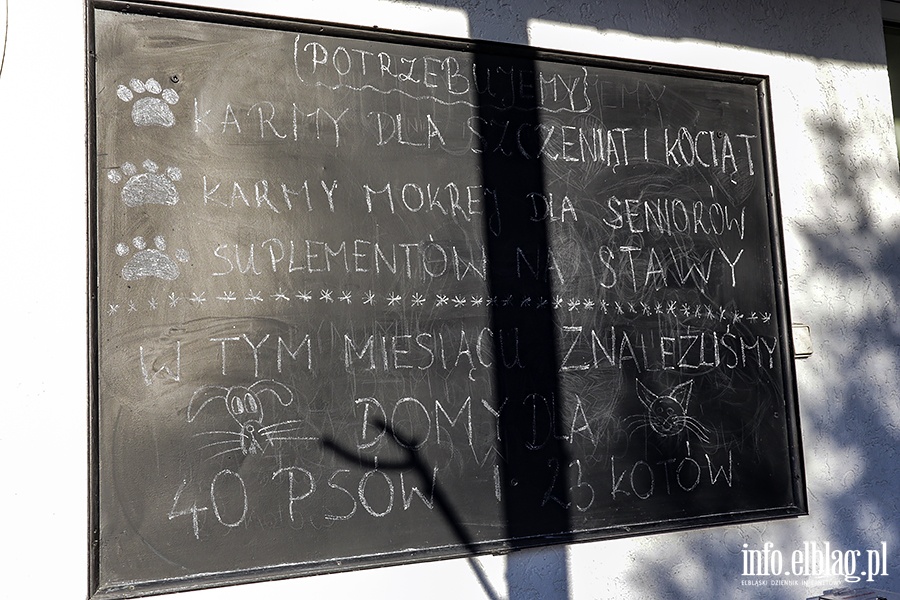 {POTRZEBUJEMY}
KARMY DLA SZCZENIĄT I KOCIĄT
KARMY MOKREJ DLA SENIORÓW
SUPLEMENTÓW NA STAWY
W TYM MIESIĄCU ZNALEŹLIŚMY
DOMY DLA
40 PSÓW I 23 KOTÓW
info.elblag.pl
ELBLĄSKI DZIENNIK INTERNETOWY